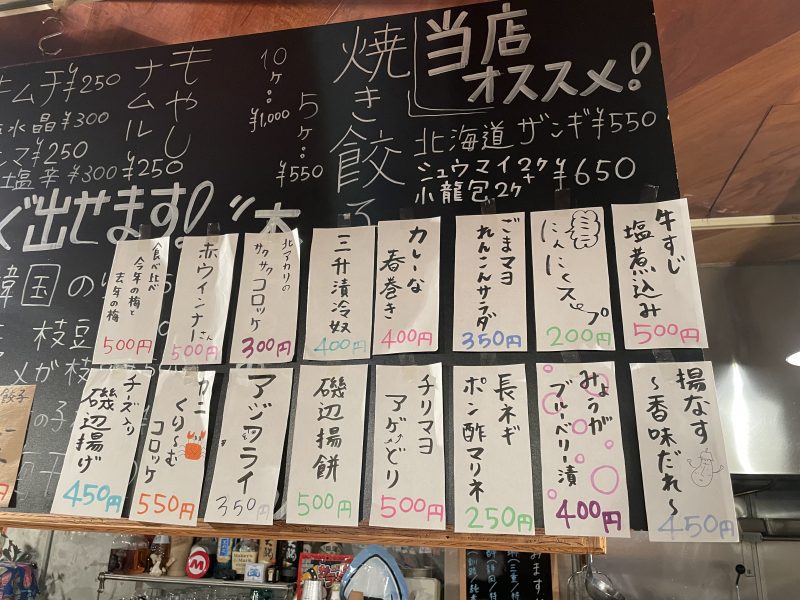 当店
オススメ!
北海道 ザンギ ¥550
シュウマイ2ケ+
小龍包2ケ
¥650
焼き餃子
10ケ:
¥1,000
5ケ:
¥550
もやし
ナムル
¥250
キムチ¥250
水晶¥300
¥250
塩辛¥300
ぐ出せます!
韓国の
枝豆
牛すじ
塩煮込み
500円
にんにくスープ
200円
ごまマヨ
れんこんサラダ
350円
カレーな
春巻き
400円
三升漬冷奴
400円
北アカリの
サクサク
コロッケ
300円
赤ウインナーさん
500円
食べ比べ
今年の梅と
去年の梅
500円
揚なす
〜香味だれ〜
450円
みょうが
ブルーベリー漬
400円
長ネギ
ポン酢マリネ
250円
チリマヨ
アゲどり
500円
磯辺揚餅
500円
アジフライ
350円
カニ
くり〜む
コロッケ
550円
チーズ入り
磯辺揚げ
450円
餃子